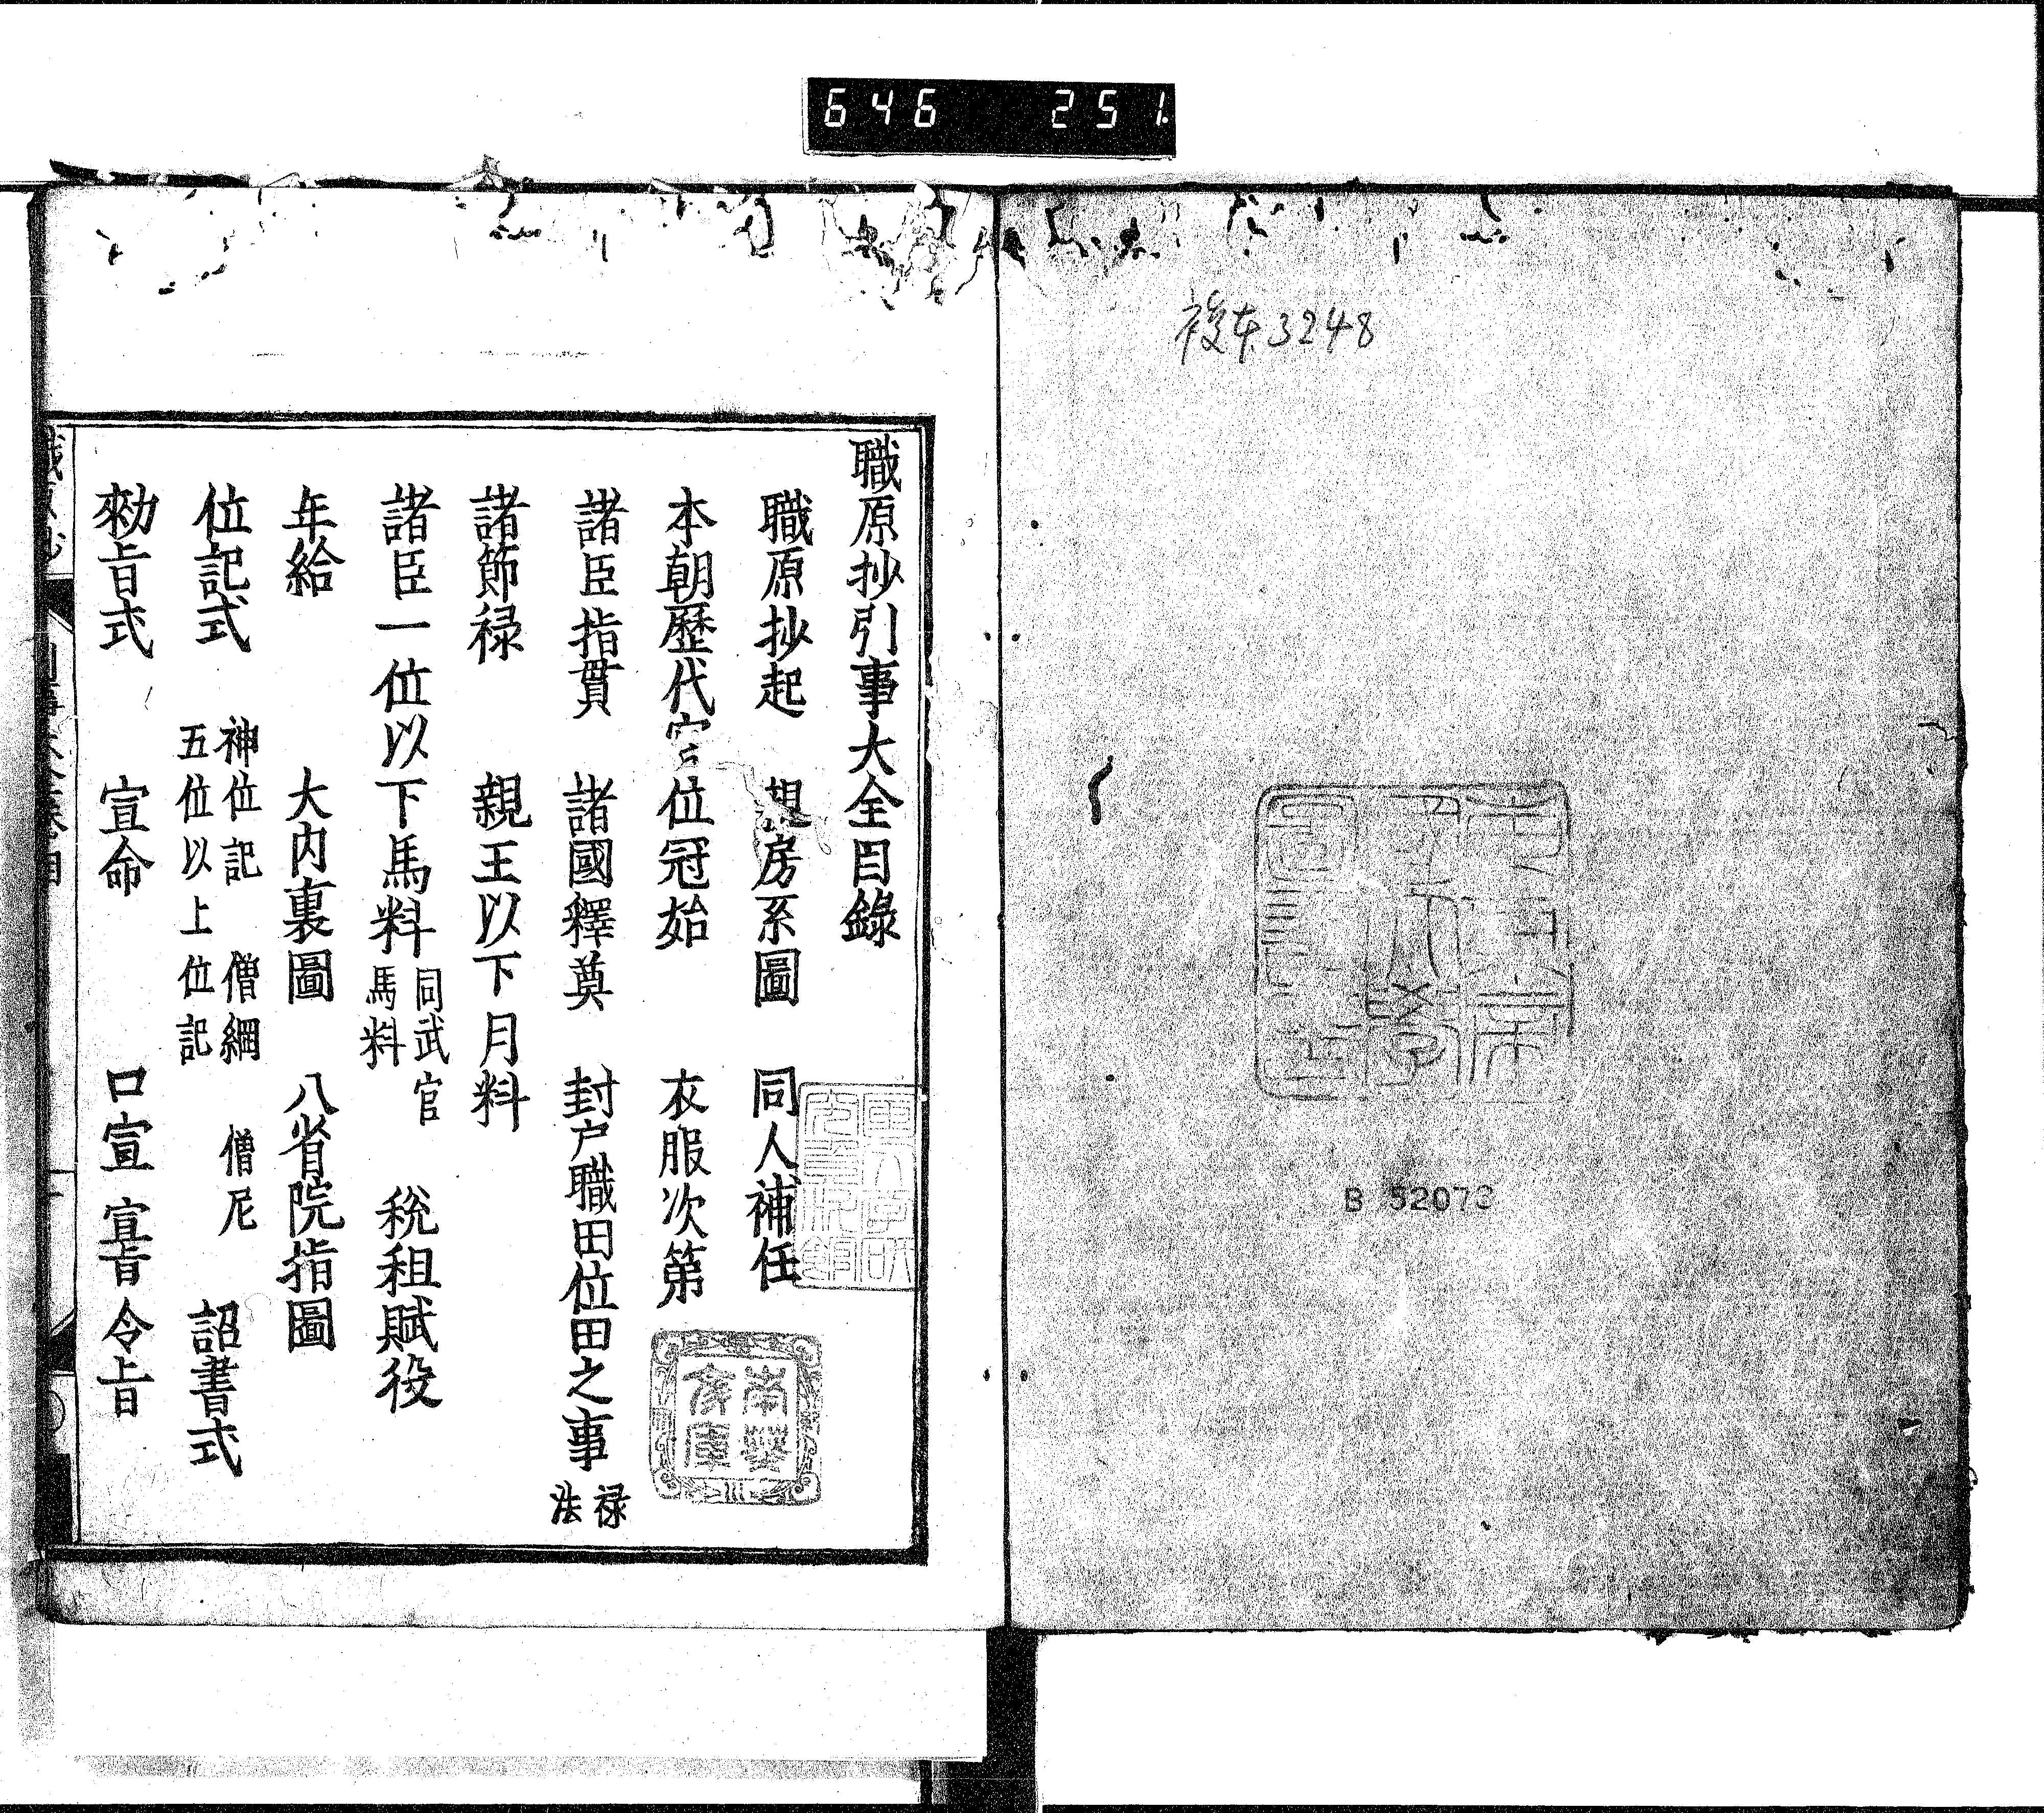 646 251.
複本3248
B 5207
職原抄引事大全目錄
職原抄起 親房系圖 同人補任
本朝歷代官位冠始 衣服次第
諸臣指貫 諸國釋奠 封戸職田位田之事 禄法
諸節禄 親王以下月料
諸臣一位以下馬料 同武官馬料 税租賦役
年給 大内裏圖 八省院指圖
位記式 神位記 僧綱 僧尼 五位以上位記 詔書式
勅旨式 宣命 口宣 宣旨 令旨
南葵文庫